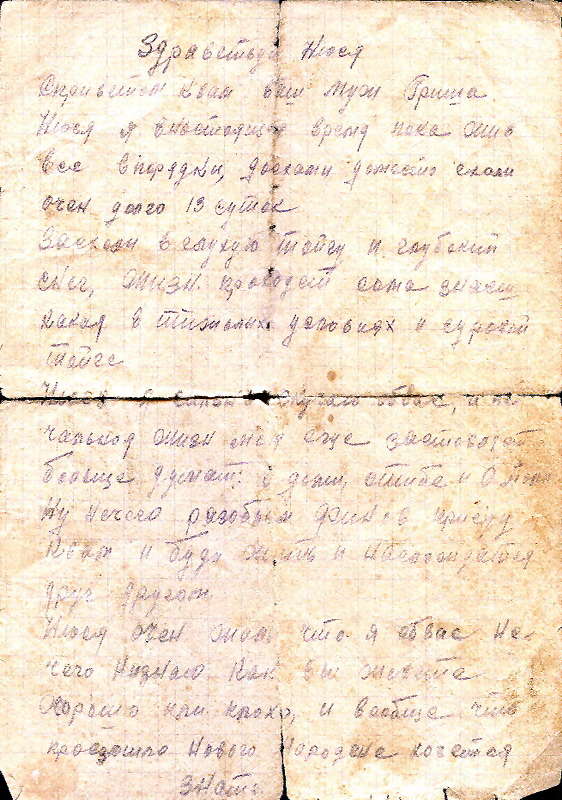 Здравствуй Нюся
Сприветом квам ваш муж Гриша
Нюся я внастоящея время пока жив
все впорядки, доехали ехали
очен долго 13 суток
Заехали в глухую тайгу и глубокий
снег, жизн проходет сама знаеш
какая в тяжолых условиях и суровой
тайге
Нюся я скучаю обвас, и пе
чальная жизн моя еще застовляет
больше думат о доми, о тибе и о
Ну нечего разобьем финов приеду
квам и буду жить и наслождатся
друг другом
Нюся очен жаль что я обвас не-
чего низнаю как вы живете
хорошо или плохо, и вообще что
проезошло нового Народене хочется
знать